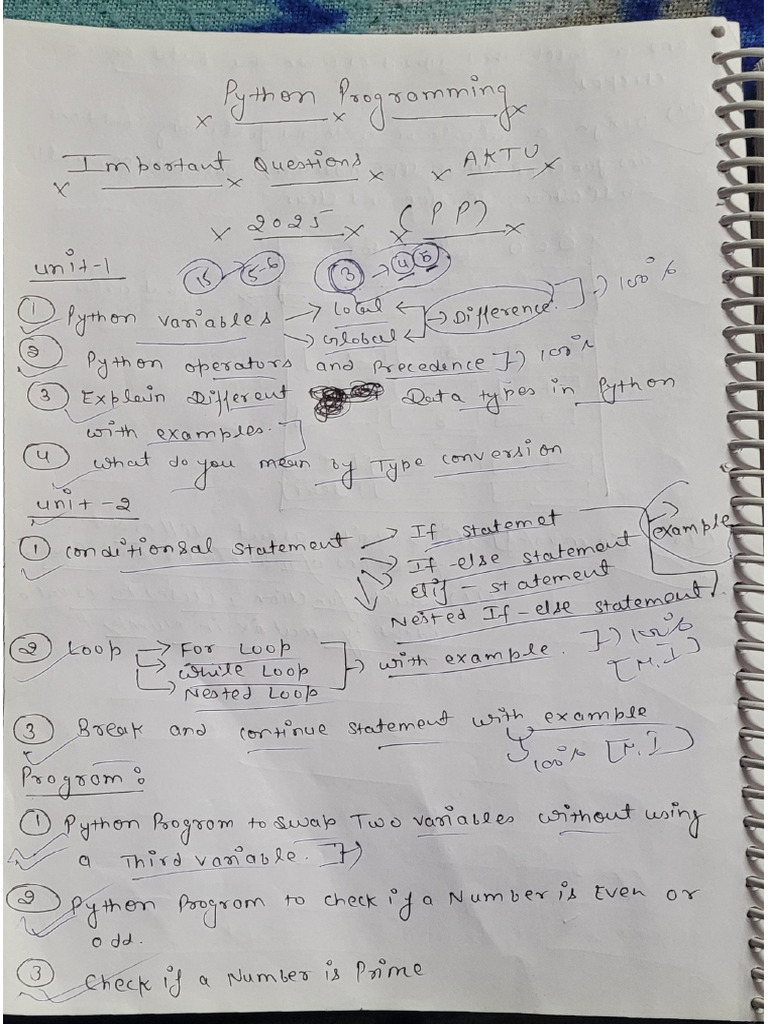 Python Programming
Important Questions AKTU
2025 (PP)
unit-1
15 → 5-6 3 → 4 5
① Python variables → Local
→ Global → Difference. → 100%
② Python operators and Precedence → 100%
③ Explain Different Data types in Python
with examples.
④ what do you mean by Type conversion
unit-2
① Conditionsal statement → If statemet
→ If-else statement → example
elif - statement
Nested If-else statement
② Loop → For Loop
→ While Loop → with example. → 100%
→ Nested Loop [M.I]
③ Break and continue statement with example
100% [M.I]
Program:
① Python Program to swap Two variables without using
a Third variable.
② Python Program to check if a Number is Even or
odd.
③ Check if a Number is Prime